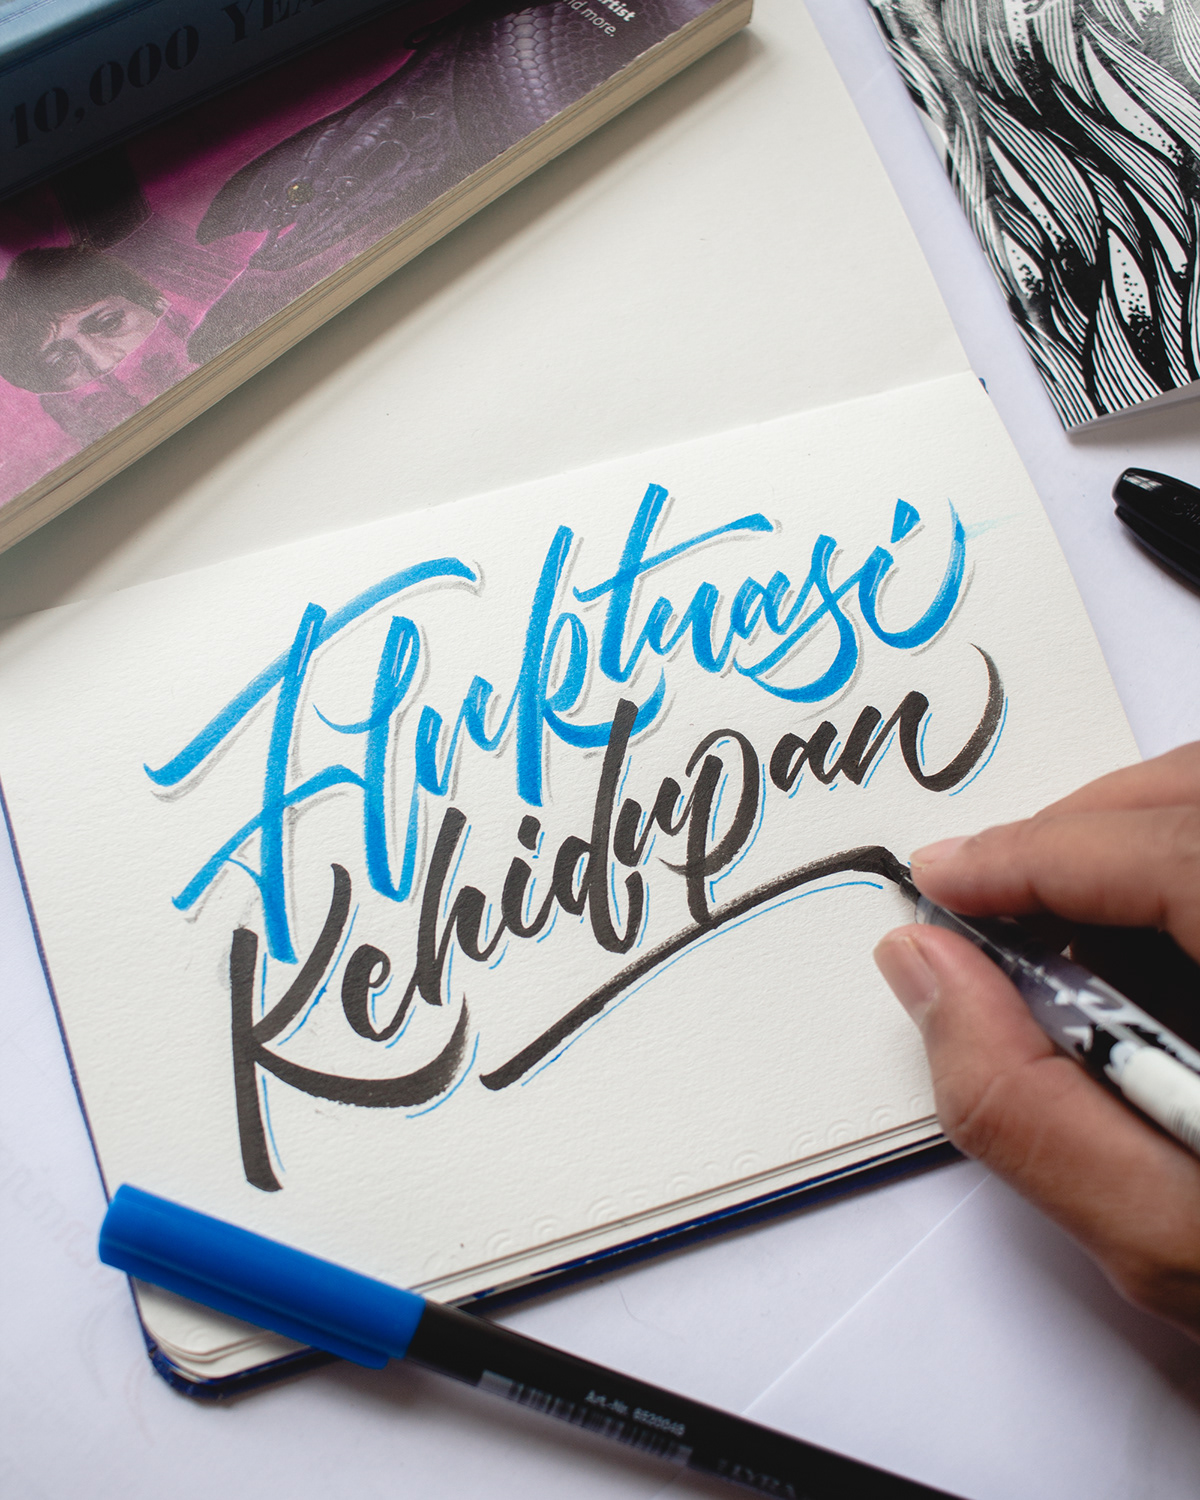 10,000 YEA
rtist
nd more.
Fluktuasi
Kehidupan
Art.-Nr. 6520048
LYRA